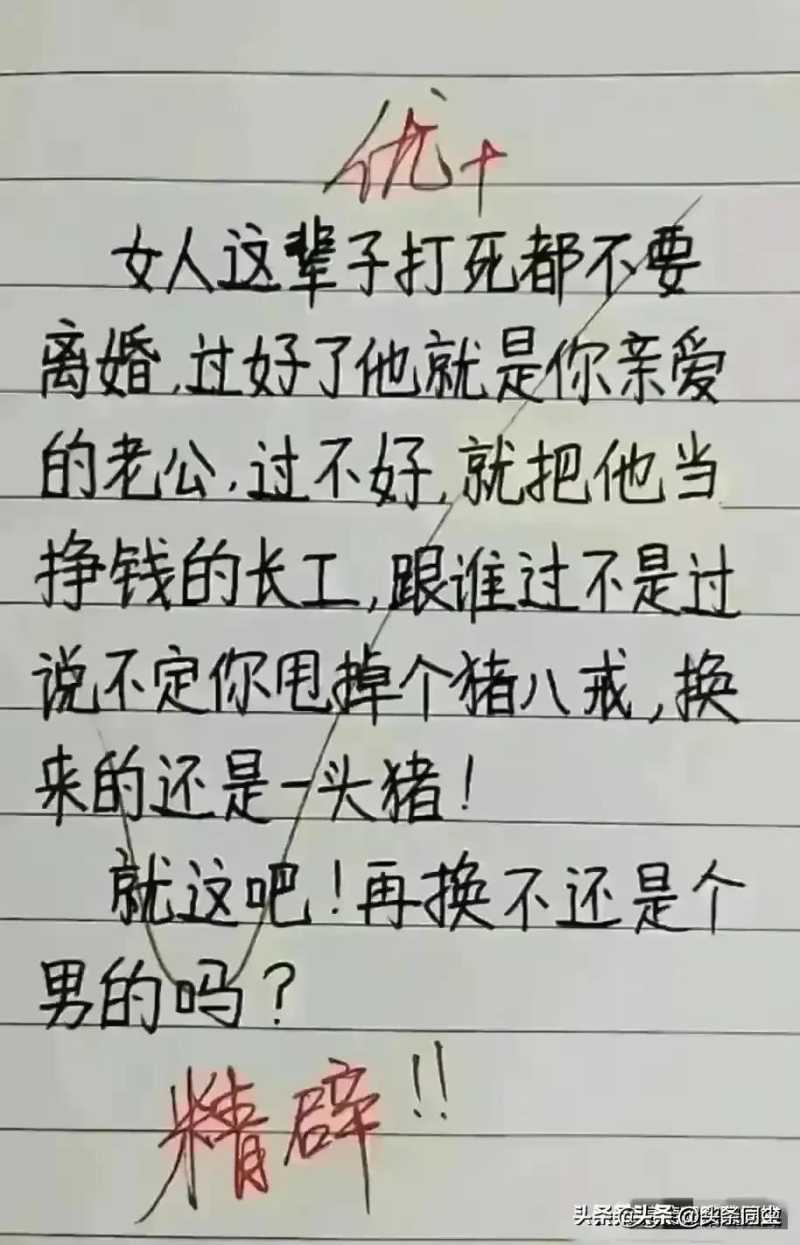 优+
女人这辈子打死都不要
离婚,过好了他就是你亲爱
的老公,过不好,就把他当
挣钱的长工,跟谁过不是过
说不定你甩掉个猪八戒,换
来的还是一头猪!
就这吧!再换不还是个
男的吗?
精辟!!
头条@头条同城